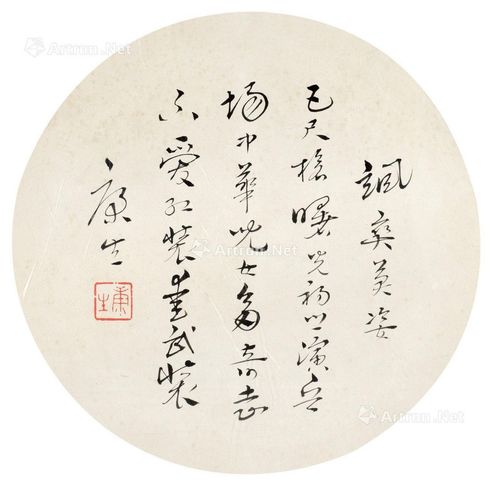 飒爽英姿
五尺枪曙光初照演兵
场中华儿女多奇志
不爱红装爱武装
康生
康生
Artron.Net
Artron.Net
Artron.Net
Artron.Net
Artron.Net